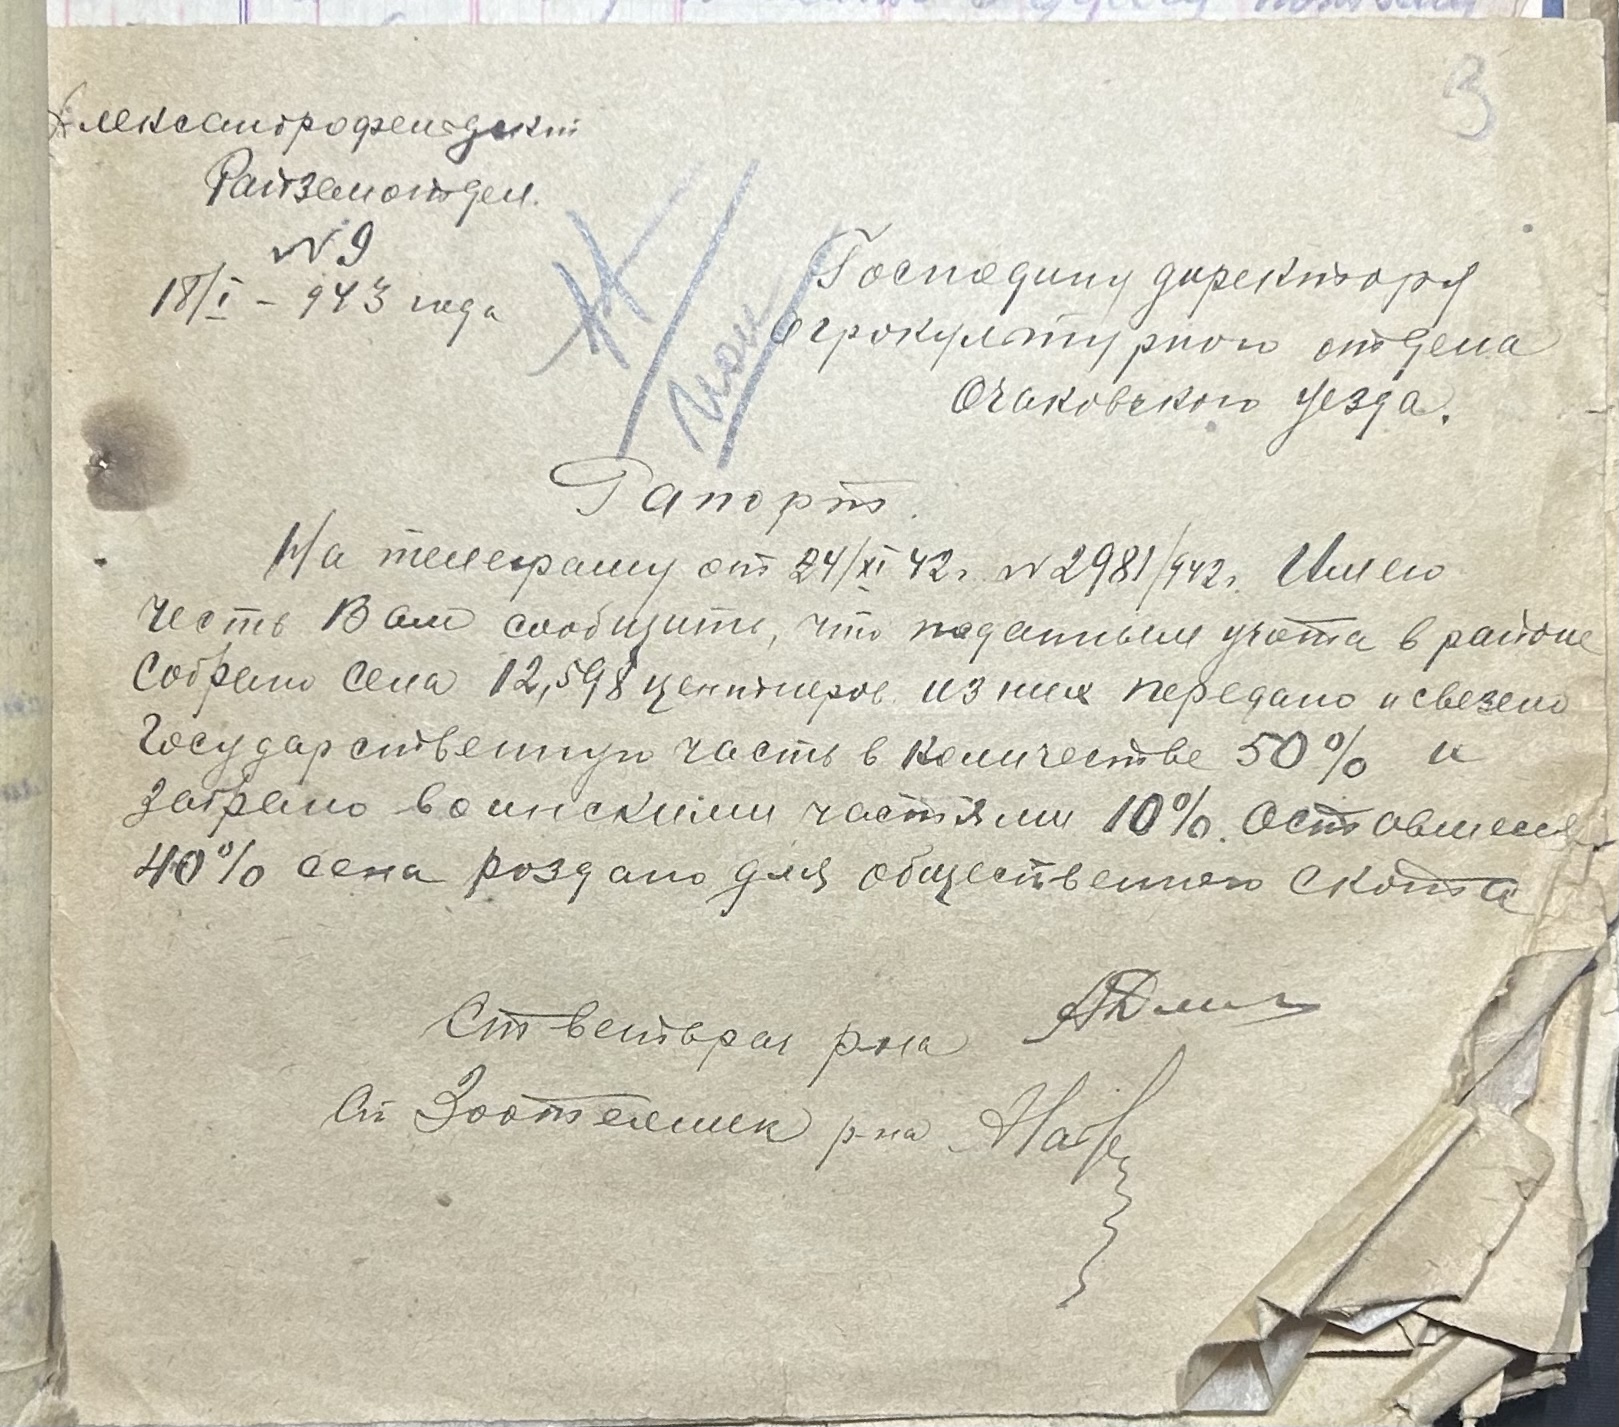 3
Александрофельдский
Райземотдел.
№ 9
18/I – 943 года
Господину директору
Агрокультурного отдела
Очаковского уезда.
Рапорт.
На телеграму от 24/XI 42г. № 2981/942г. Имею
честь Вам сообщить, что поданным учота в районе
Собрано сена 12,598 центнеров из них передано и свезено
Государственную часть в количестве 50% и
забрано воинскими частями 10%. Оставшеяся
40% сена роздано для общественного скота
Ст ветврач р-на
Ст Зоотехник р-на